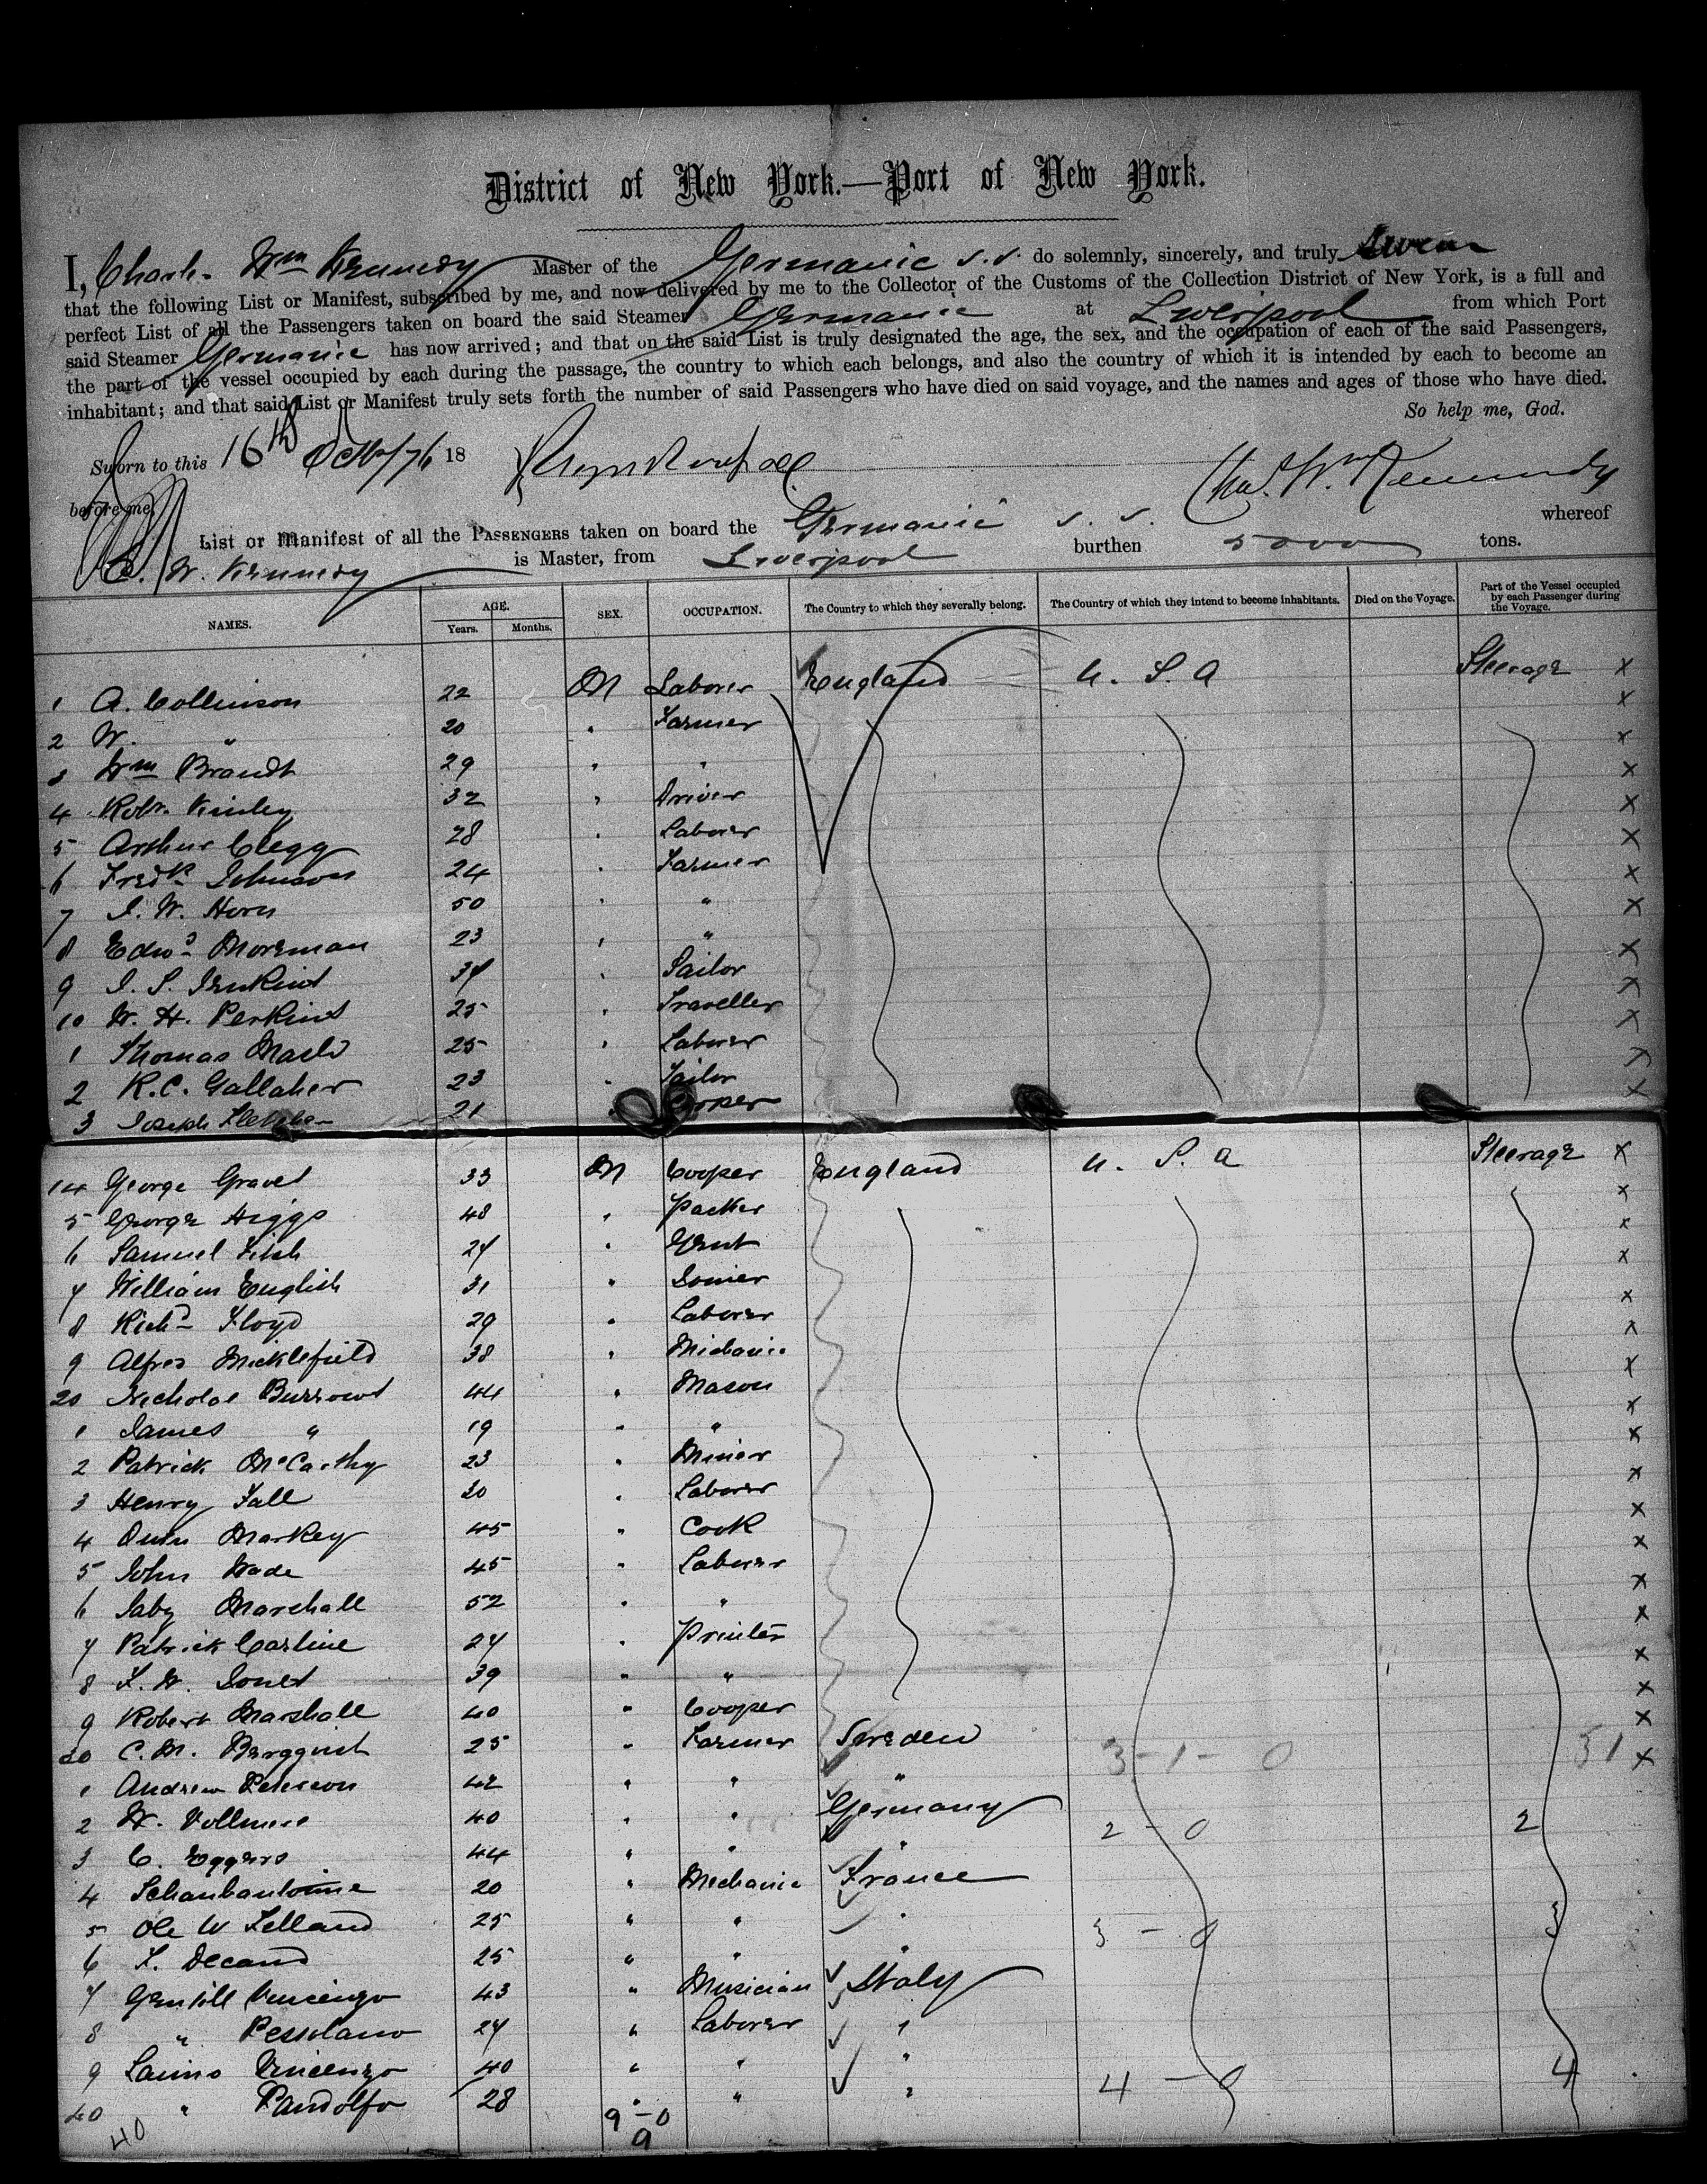 District of New York.—Port of New York.
I, Charles Wm Kennedy Master of the Germanic s.s. do solemnly, sincerely, and truly swear
that the following List or Manifest, subscribed by me, and now delivered by me to the Collector of the Customs of the Collection District of New York, is a full and
perfect List of all the Passengers taken on board the said Steamer Germanic at Liverpool from which Port
said Steamer Germanic has now arrived; and that on the said List is truly designated the age, the sex, and the occupation of each of the said Passengers,
the part of the vessel occupied by each during the passage, the country to which each belongs, and also the country of which it is intended by each to become an
inhabitant; and that said List or Manifest truly sets forth the number of said Passengers who have died on said voyage, and the names and ages of those who have died.
So help me, God.
Sworn to this 16th Octbr/76 18
Chas. Wm Kennedy
before me,
List or Manifest of all the PASSENGERS taken on board the Germanic s. s. whereof
C. W. Kennedy is Master, from Liverpool burthen 5000 tons.
NAMES. AGE. Years. Months. SEX. OCCUPATION. The Country to which they severally belong. The Country of which they intend to become inhabitants. Died on the Voyage. Part of the Vessel occupied by each Passenger during the Voyage.
1 A. Collinson 22 M Laborer England U. S. A Steerage x
2 W. " 20 " Farmer x
3 Wm Brandt 29 " " x
4 Robt. Kinley 32 " Driver x
5 Arthur Clegg 28 " Laborer x
6 Fredk Johnson 24 " Farmer x
7 J. W. Horn 50 " " x
8 Edwd Moreman 23 " " x
9 J. S. Jenkins 34 " Sailor x
10 W. H. Perkins 25 " Traveller x
1 Thomas Nash 25 " Laborer x
2 R. C. Gallaher 23 " Tailor x
3 Joseph Fletcher 21 " x
14 George Gravel 33 M Cooper England U. S. A Steerage x
5 George Higgs 48 " Packer x
6 Samuel Fish 24 " Gent x
7 William English 31 " Joiner x
8 Richd Floyd 29 " Laborer x
9 Alfred Micklefield 38 " Mechanic x
20 Nicholas Burrows 44 " Mason x
1 James " 19 " " x
2 Patrick McCarthy 23 " Miner x
3 Henry Fall 30 " Laborer x
4 Owen Markey 45 " Cook x
5 John Wade 45 " Laborer x
6 Saby Marshall 52 " " x
7 Patrick Carline 24 " Printer x
8 F. W. Jones 39 " " x
9 Robert Marshall 40 " Cooper x
30 C. M. Bergqvist 25 " Farmer Sweden 3-1- 0 31 x
1 Andrew Peterson 42 " " "
2 W. Vollmers 40 " " Germany 2 - 0 2
3 C. Eggers 44 " " "
4 20 " Mechanic France
5 Ole W Felland 25 " " " 3 - 0 3
6 F. Decand 25 " " "
7 Gentill Vincenzo 43 " Musician Italy
8 " Pessolano 24 " Laborer "
9 Laino Vincenzo 40 " " "
40 " Pandolfo 28 " " " 4 - 0 4
40 9-0
9